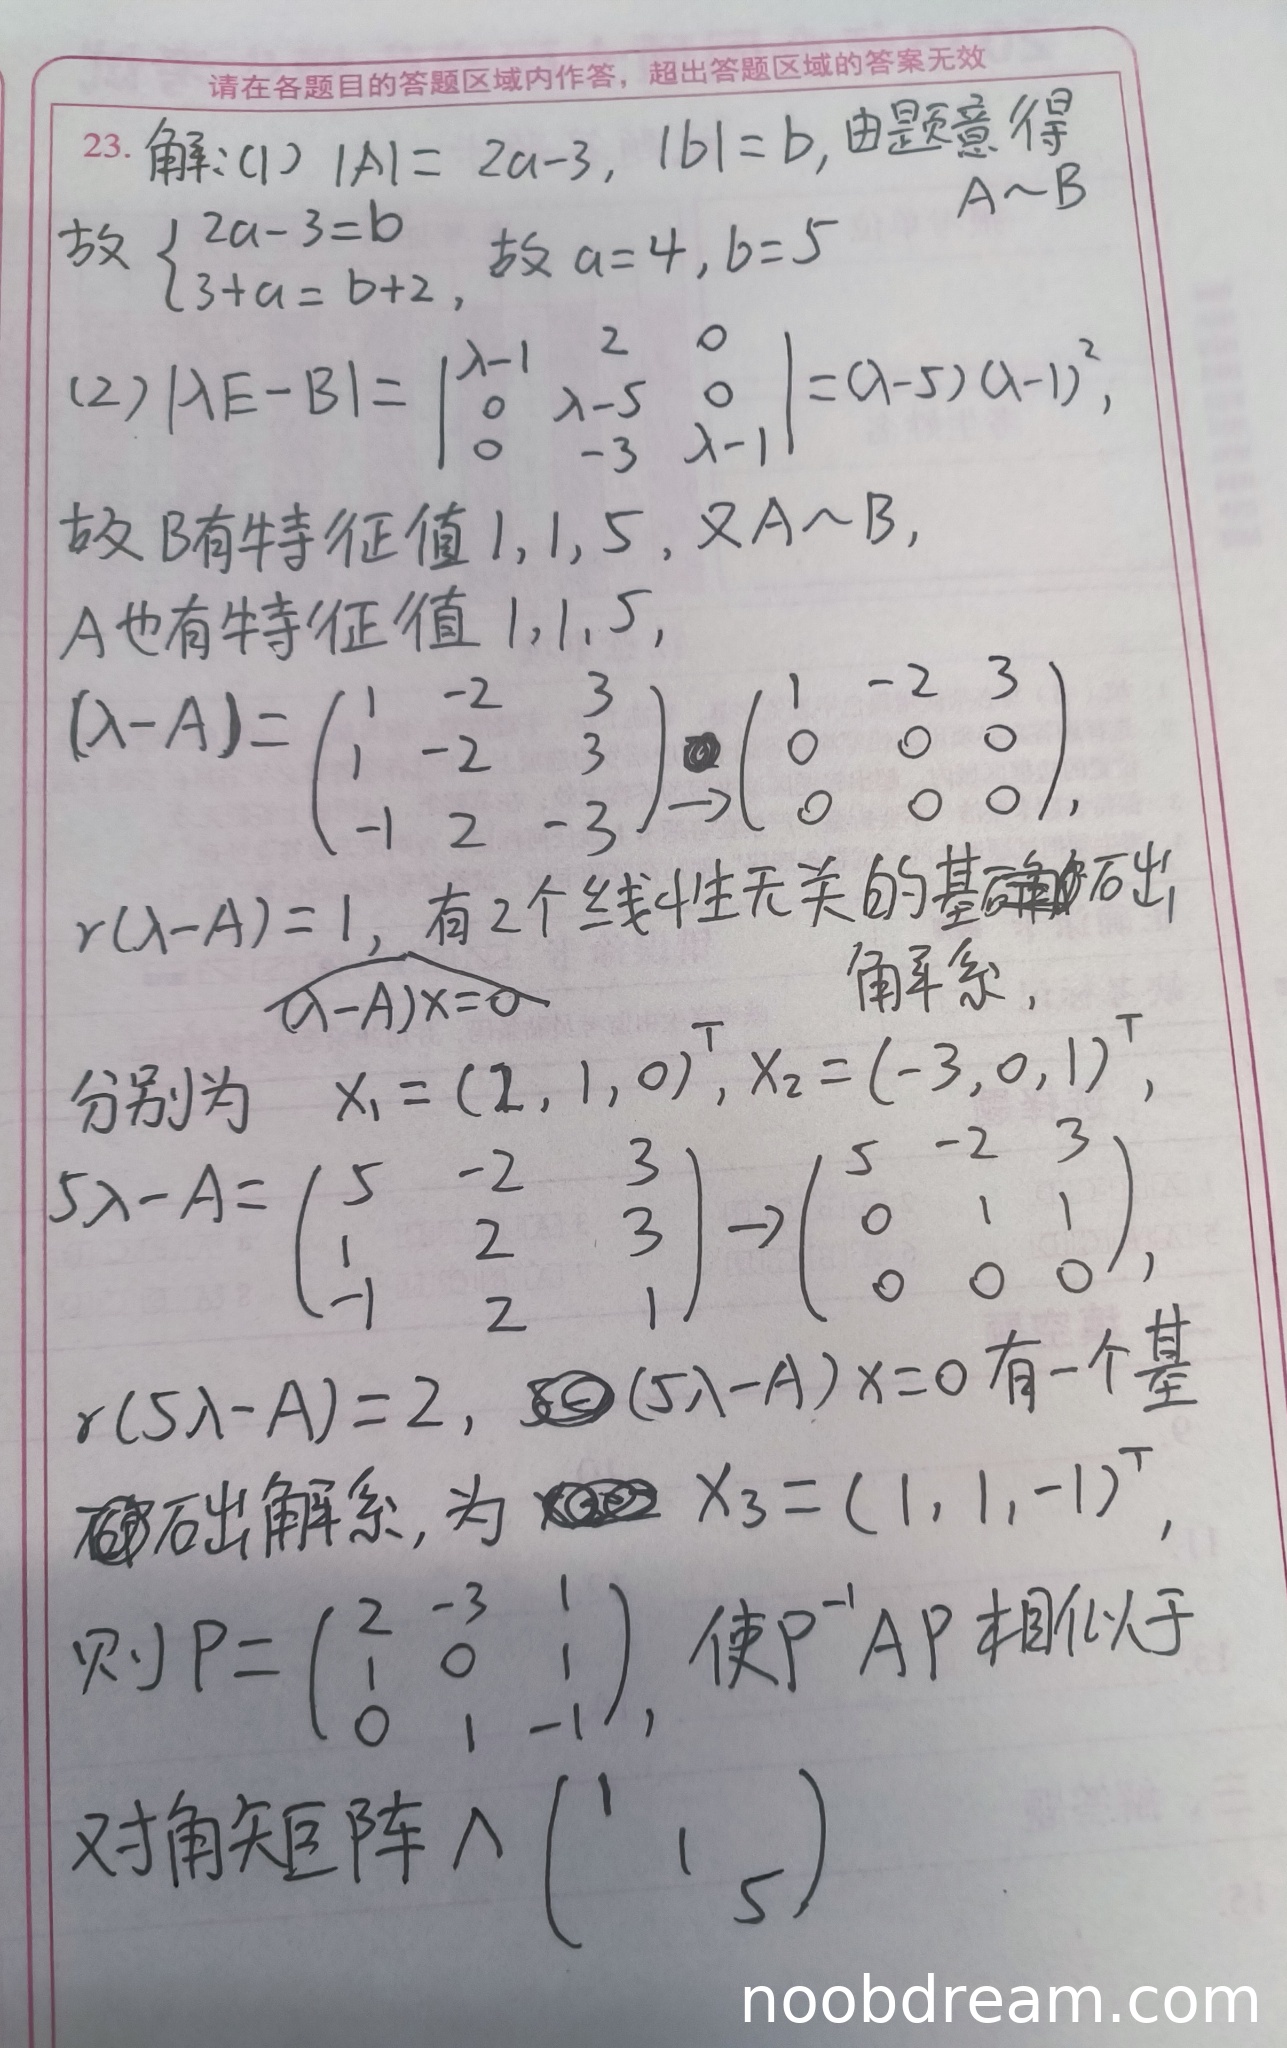 请在各题目的答题区域内作答，超出答题区域的答案无效
23. 解:(1) |A|= 2a-3, |b|=b, 由题意得
A~B
故 { 2a-3=b
3+a=b+2, 故 a=4, b=5
(2) |λE-B|= | λ-1 2 0
0 λ-5 0
0 -3 λ-1 | =(λ-5)(λ-1)²,
故B有特征值1,1,5, 又A~B,
A也有特征值1,1,5,
(λ-A)= ( 1 -2 3
1 -2 3
-1 2 -3 ) → ( 1 -2 3
0 0 0
0 0 0 ),
r(λ-A)=1, 有2个线性无关的基础
解系,
(λ-A)x=0
分别为 x₁=(2,1,0)ᵀ, x₂=(-3,0,1)ᵀ,
5λ-A= ( 5 -2 3
1 2 3
-1 2 1 ) → ( 5 -2 3
0 1 1
0 0 0 ),
r(5λ-A)=2, (5λ-A)x=0有一个基
础解系,为 x₃=(1,1,-1)ᵀ,
则P= ( 2 -3 1
1 0 1
0 1 -1 ), 使P⁻¹AP相似于
对角矩阵Λ ( 1
1
5 )
noobdream.com